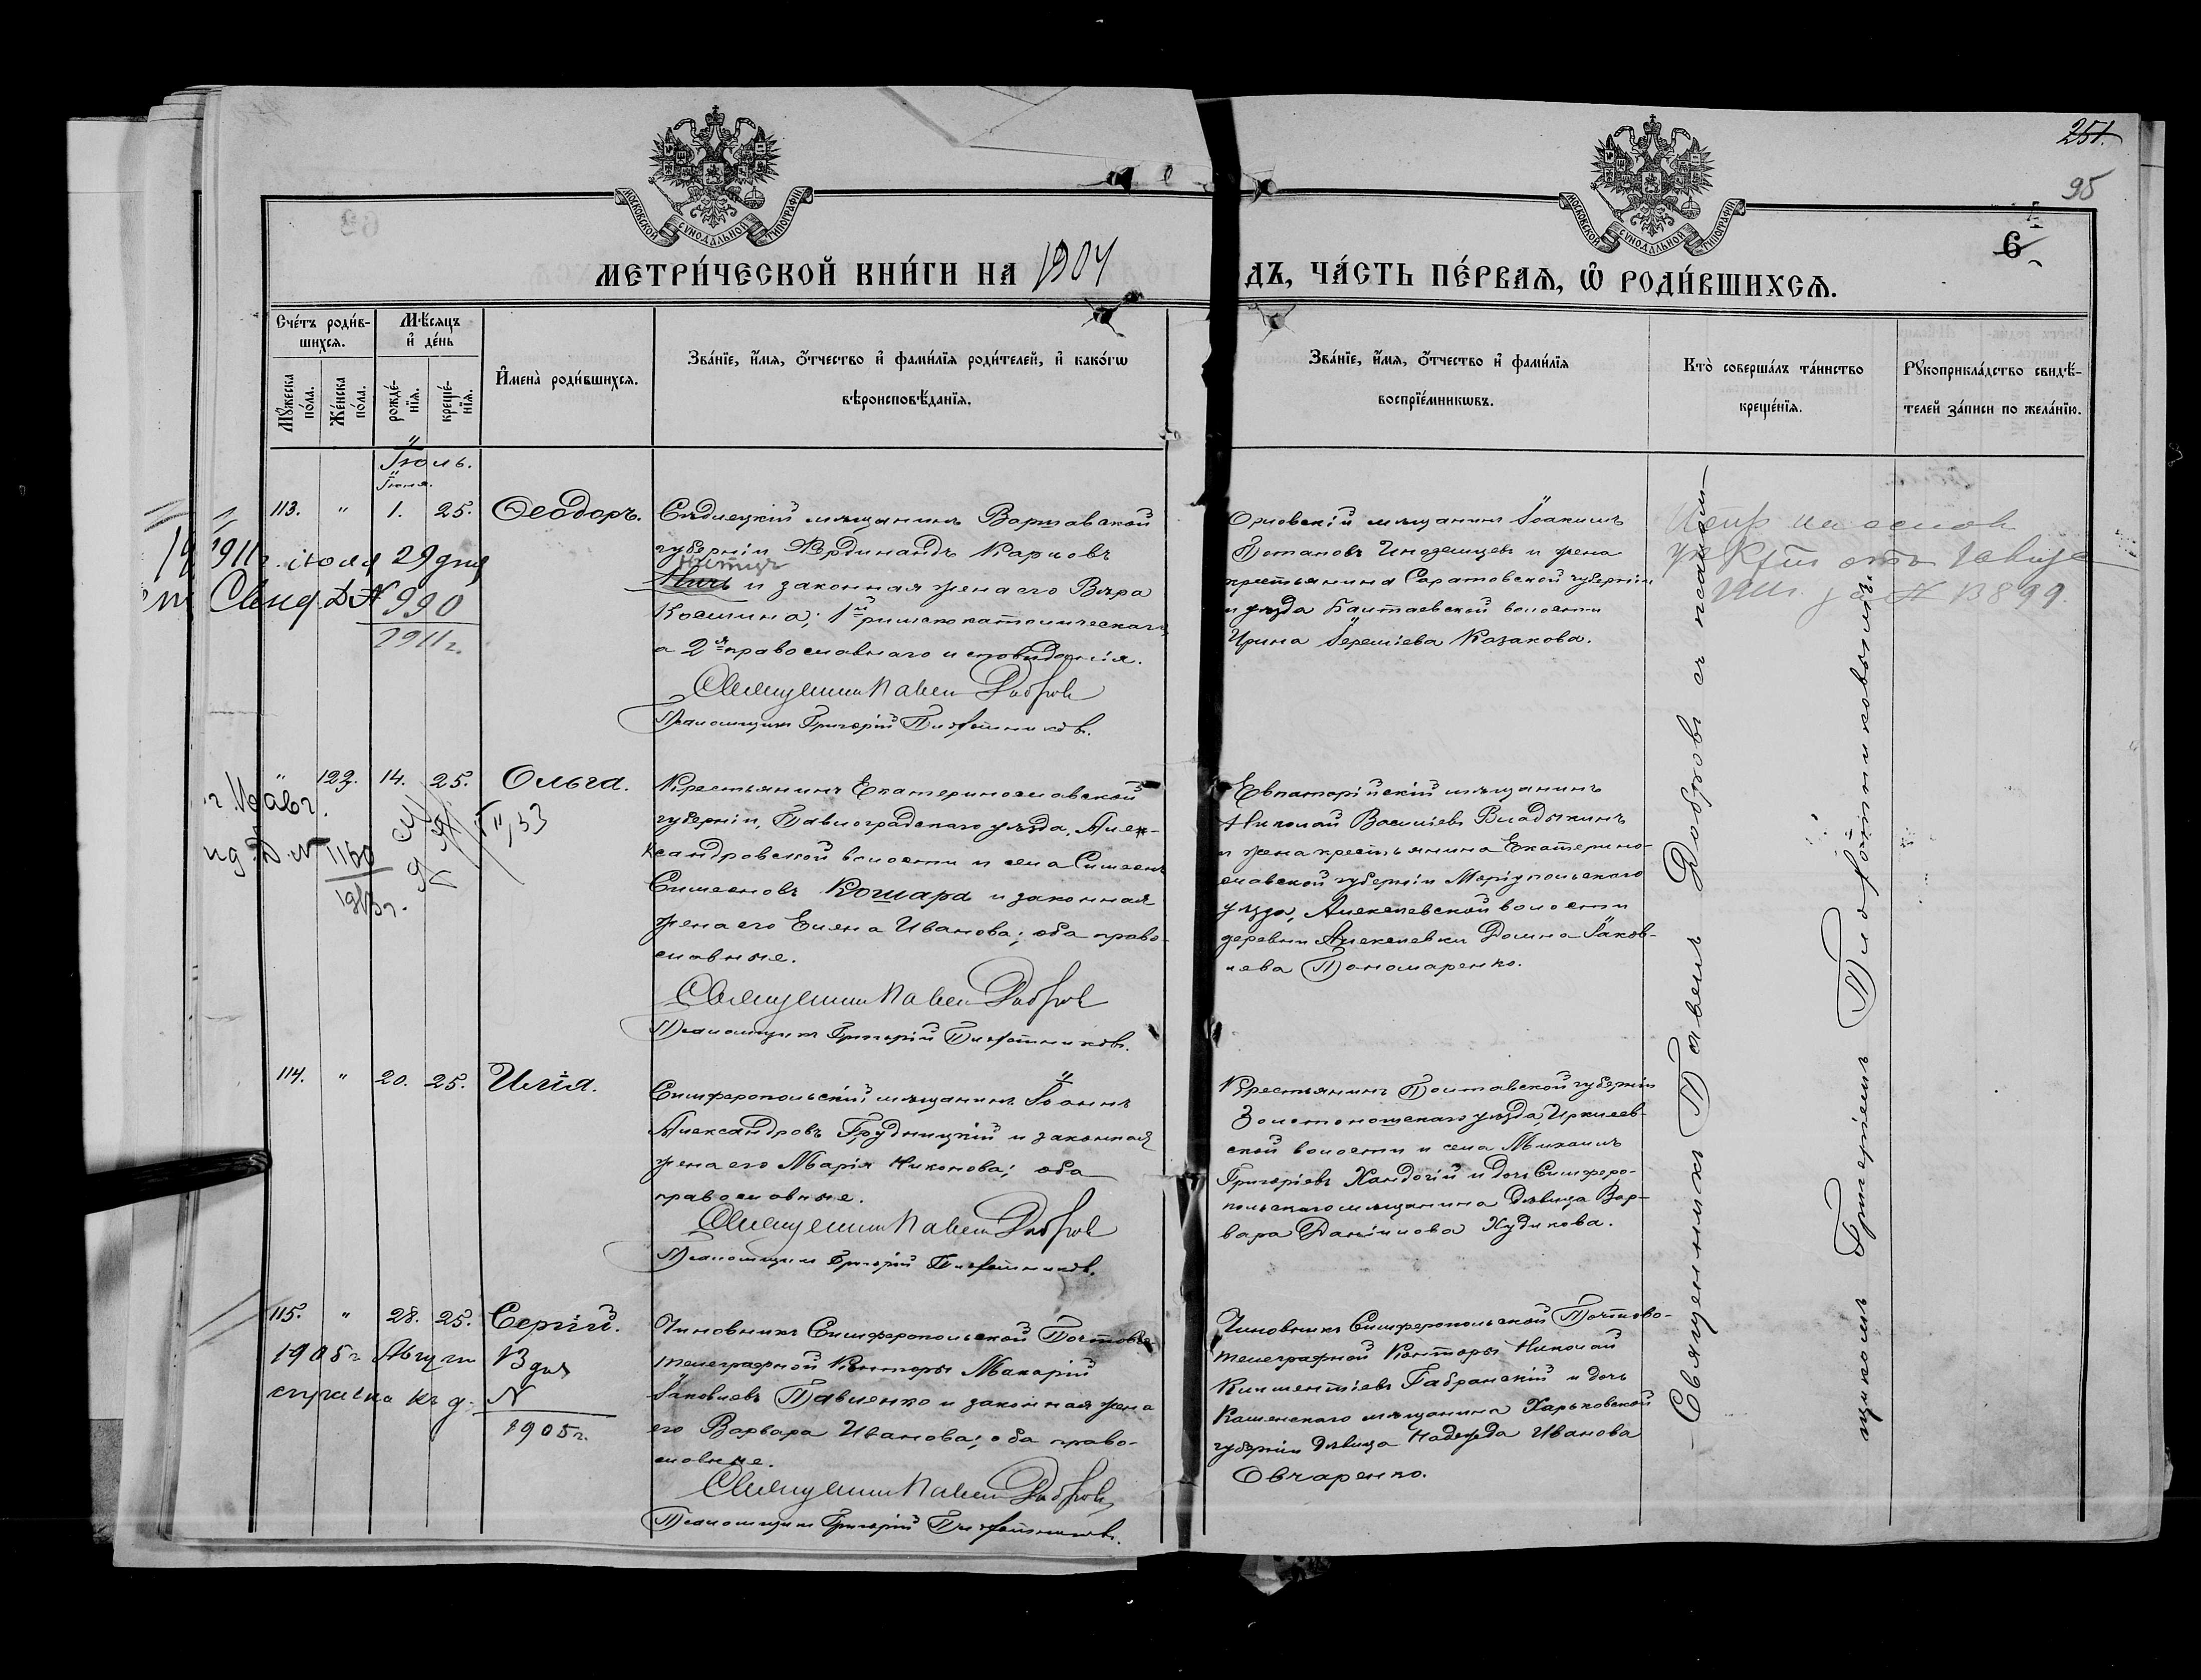 251.
95
6
МОСКОВСКОЙ СѴНОДАЛЬНОЙ ТИПОГРАФІИ
МОСКОВСКОЙ СѴНОДАЛЬНОЙ ТИПОГРАФІИ
МЕТРИ́ЧЕСКОЙ КНИ́ГИ НА 1904
ДЪ, ЧА́СТЬ ПЕ́РВАѦ, Ѿ РОДИ́ВШИХСѦ.
Сче́тъ роди́в-
шихся.
Мѣ́сяцъ
и҆ де́нь
Мꙋ́жеска
по́ла.
Же́нска
по́ла.
рожде́-
нїя.
креще́-
нїя.
И҆мена̀ роди́вшихся.
Зва́нїе, и҆́мя, ѻ҆́тчество и҆ фами́лїя роди́телей, и҆ како́гѡ
вѣроисповѣ́данїя.
Зва́нїе, и҆́мя, ѻ҆́тчество и҆ фами́лїя
воспрїе́мникѡвъ.
Кто̀ соверша́лъ та́инство
креще́нїя.
Рꙋкоприкла́дство свидѣ́-
телей за́писи по жела́нїю.
Іюль.
Іюня.
113. " 1. 25. Ѳеодоръ.
Сѣдлецкій мѣщанинъ Варшавской
губерніи Фердинандъ Карловъ
и законная жена его Вѣра
Косьмина; 1й римско католическаго
а 2я православнаго исповѣданія.
Священникъ Павелъ Добровъ
Псаломщикъ Григорій Плотниковъ.
Орловскій мѣщанинъ Іоакимъ
Потаповъ Иноземцев и жена
крестьянина Саратовской губерніи
и уѣзда Балтаевской волости
Ирина Іереміева Казакова.
1911г. іюля 29 дня
Свид. Д № 990
1911г.
" 122. 14. 25. Ольга.
Крестьянинъ Екатеринославской
губерніи, Павлоградскаго уѣзда, Алек-
сандровской волости и села Симеонъ
Симеоновъ Кошара и законная
жена его Елена Иванова; оба право-
славные.
Священникъ Павелъ Добровъ
Псаломщикъ Григорій Плотниковъ.
Евпаторійскій мѣщанинъ
Николай Васильевъ Владыкинъ
и жена крестьянина Екатерино-
славской губерніи Маріупольскаго
уѣзда, Алексеевской волости
деревни Алексеевки Домна Іаков-
лева Пономаренко.
1160
1913г.
114. " 20. 25. Илія.
Симферопольскій мѣщанинъ Іоаннъ
Александровъ Грудницкій и законная
жена его Марія Никонова; оба
православные.
Священникъ Павелъ Добровъ
Псаломщикъ Григорій Плотниковъ.
Крестьянинъ Полтавской губерніи
Золотоношскаго уѣзда, Ирклеев-
ской волости и села Михаилъ
Григоріевъ Хандогій и дочь Симферо-
польскаго мѣщанина дѣвица Вар-
вара Даніилова Худикова.
115. " 28. 25. Сергій.
1905г. Август
справка къ д. №
1905г.
Чиновникъ Симферопольской Почтово
телеграфной Конторы Макарій
Іаковлевъ Павленко и законная жена
его Варвара Иванова; оба право-
славные.
Священникъ Павелъ Добровъ
Псаломщикъ Григорій Плотниковъ.
Чиновникъ Симферопольской Почтово-
телеграфной Конторы Николай
Климентіевъ Габранскій и дочь
Каменскаго мѣщанина Харьковской
губерніи дѣвица Надежда Иванова
Овчаренко.
Священникъ Павелъ Добровъ съ псалом-
щикомъ Григоріемъ Плотниковымъ.